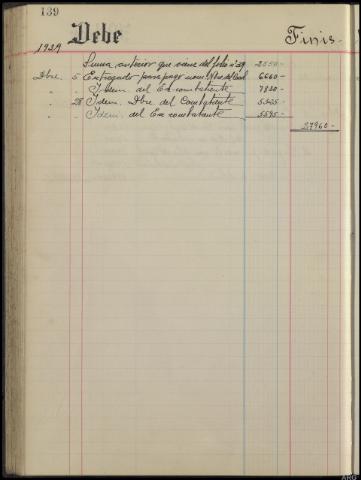 139
Debe
Finis.
1924
Suma anterior que viene del folio nº 39 2550-
Dbre. 5 Entregado para pagar Nbre. del 6660-
" " Idem. del Ex combatiente 7830-
" 28 Idem. Dbre del Combatiente 5325-
" " Idem. del Ex combatiente 5595-
27960-
ARG